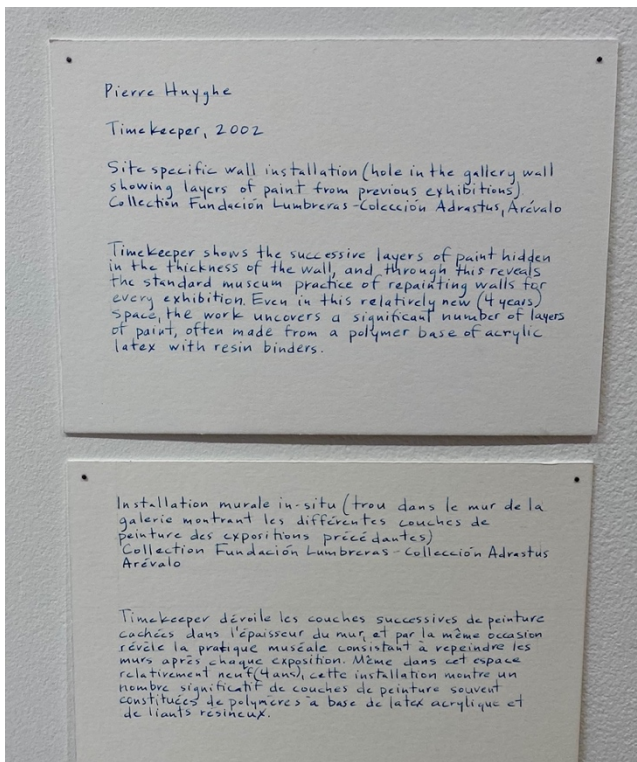 Pierre Huyghe
Timekeeper, 2002
Site specific wall installation (hole in the gallery wall
showing layers of paint from previous exhibitions)
Collection Fundación Lumbreras - Colección Adrastus, Arévalo
Timekeeper shows the successive layers of paint hidden
in the thickness of the wall, and through this reveals
the standard museum practice of repainting walls for
every exhibition. Even in this relatively new (4 years)
space, the work uncovers a significant number of layers
of paint, often made from a polymer base of acrylic
latex with resin binders.
Installation murale in-situ (trou dans le mur de la
galerie montrant les différentes couches de
peinture des expositions précédantes)
Collection Fundación Lumbreras - Collección Adrastus
Arévalo
Timekeeper dévoile les couches successives de peinture
cachées dans l'épaisseur du mur, et par la même occasion
révèle la pratique muséale consistant à repeindre les
murs après chaque exposition. Même dans cet espace
relativement neuf (4 ans), cette installation montre un
nombre significatif de couches de peinture souvent
constituées de polymères à base de latex acrylique et
de liants résineux.